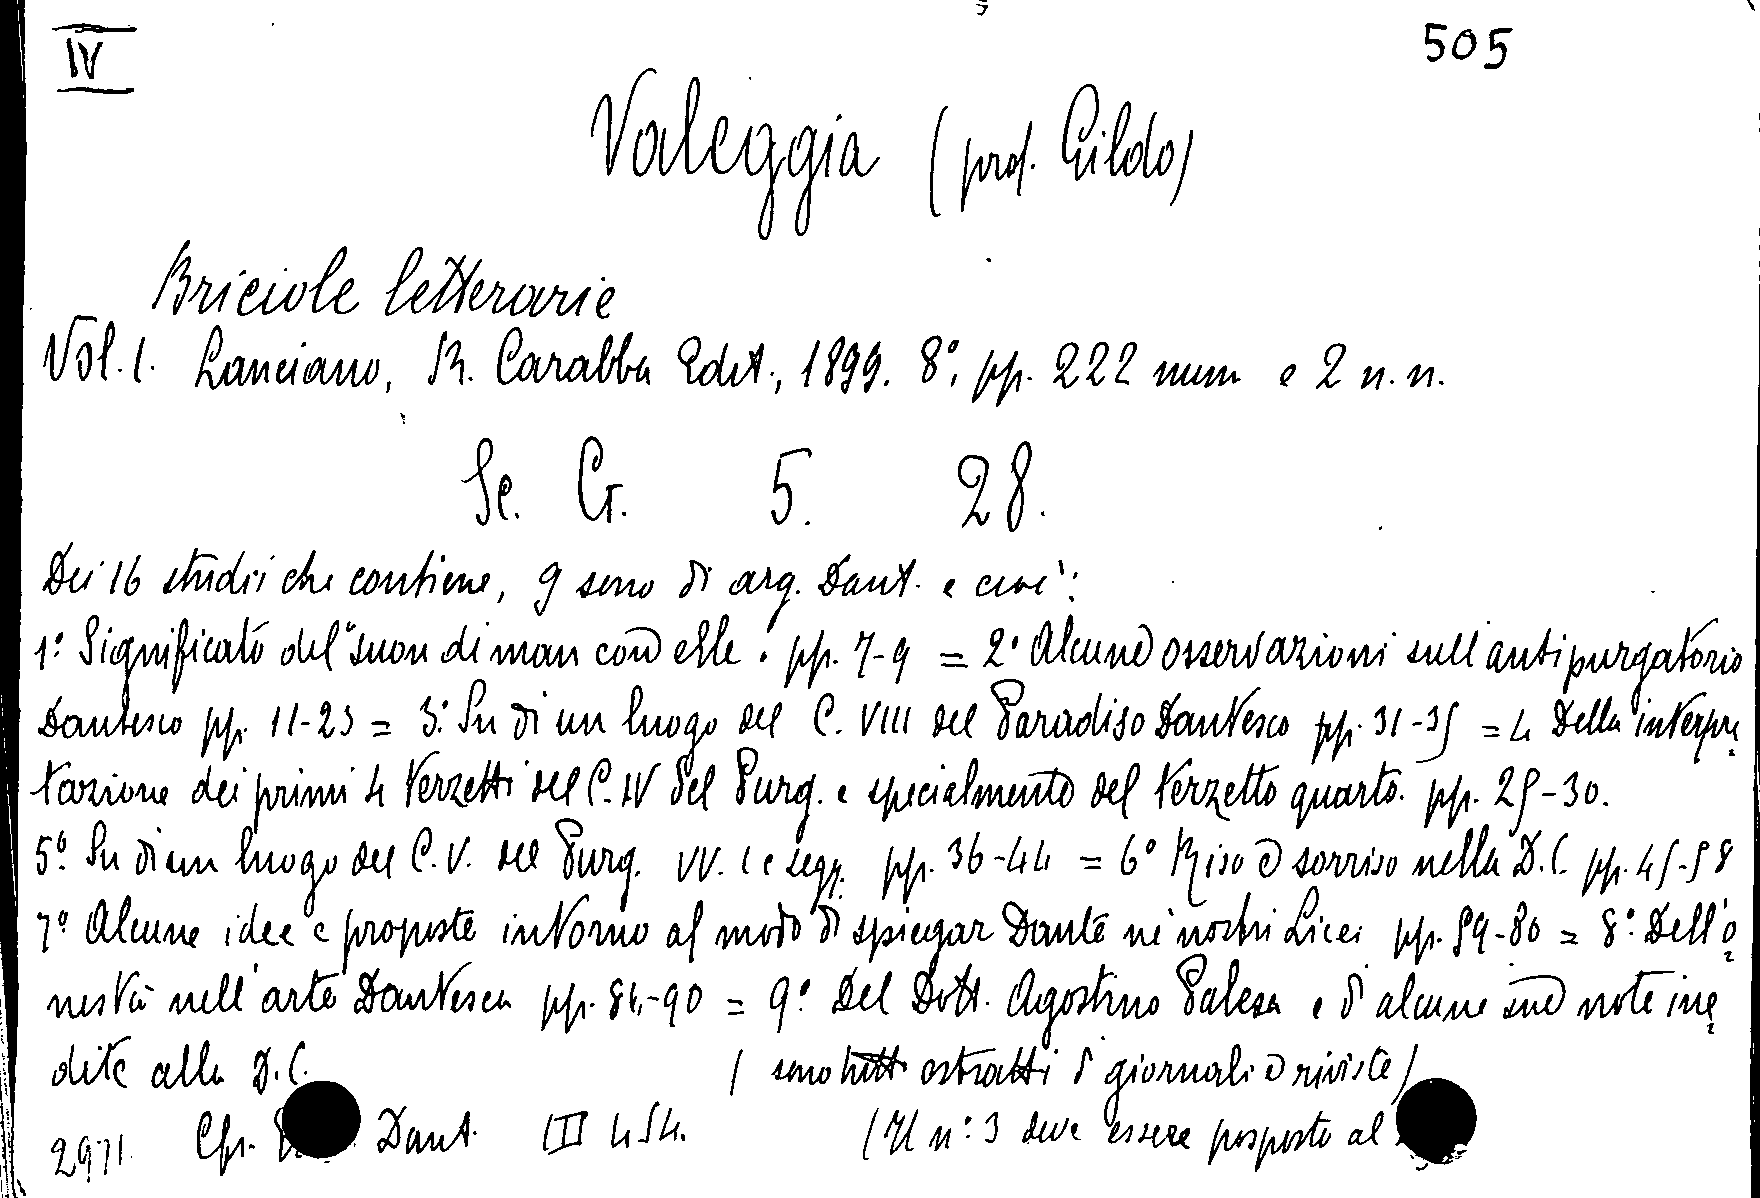 IV
505
Valeggia (prof. Gildo)
Briciole letterarie
Vol. I. Lanciano, R. Carabba Edit., 1899. 8°, pp. 222 num e 2 n. n.
Sc. Cr. 5. 28.
Dei 16 studii che contiene, 9 sono di arg. Dant. e cioè:
1° Significato del "suon di man con elle" pp. 7-9 = 2° Alcune osservazioni sull'antipurgatorio
Dantesco pp. 11-23 = 3° Su di un luogo del C. VIII del Paradiso Dantesco pp. 31-35 = 4 Della interpre-
tazione dei primi 4 terzetti del C. IV del Purg. e specialmente del terzetto quarto. pp. 25-30.
5° Su di un luogo del C. V. del Purg. VV. 1 e segg. pp. 36-44 = 6° Riso e sorriso nella D. C. pp. 45-58
7° Alcune idee e proposte intorno al modo di spiegar Dante ne' nostri Licei pp. 59-80 = 8° Dell'o-
nestà nell'arte Dantesca pp. 84-90 = 9° Del Dott. Agostino Palesa e di alcune sue note ine-
dite alla D. C. (sono tutti estratti di giornali e riviste)
2971 Cfr. Dant. III 454. (Il n° 3 deve essere posposto al